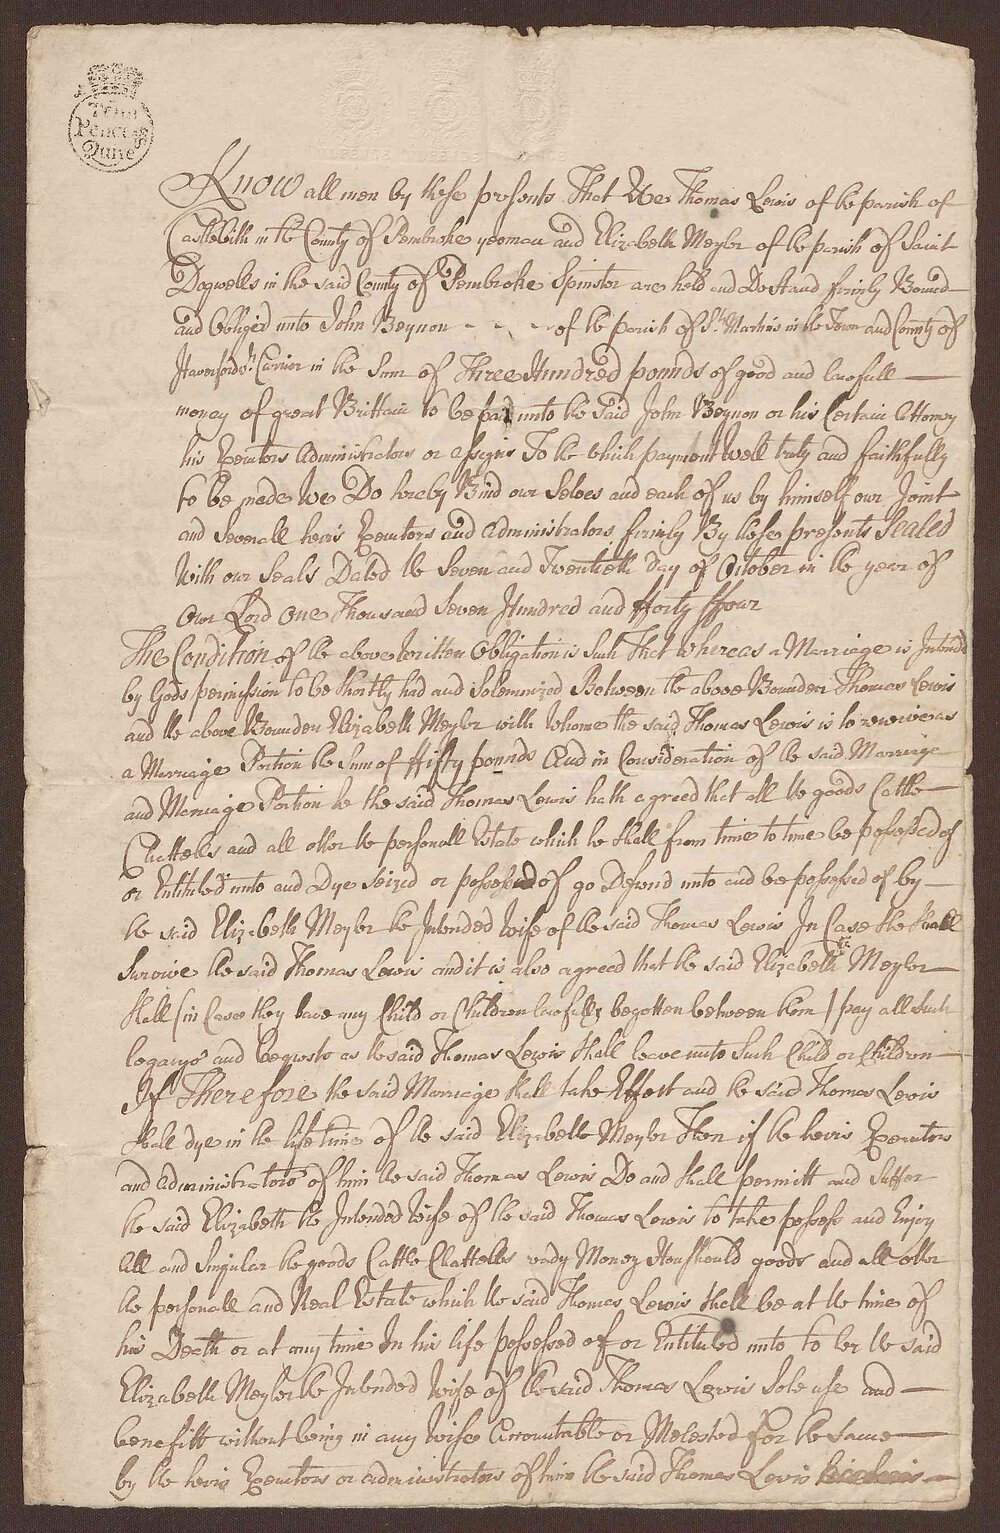 Penn
Pence p
Quire
Know all men by these presents That We Thomas Lewis of the parish of
Castlebith in the County of Pembroke yeoman and Elizabeth Meyler of the parish of Saint
Dogwells in the said County of Pembroke Spinster are held and Do Stand firmly Bound
and Obliged unto John Beynon - - - of the parish of St Martins in the Town and County of
Haverfordwt Carrier in the Sum of Three Hundred pounds of good and lawfull
money of great Brittain to be paid unto the Said John Beynon or his Certain Attorney
his Executors Administrators or assigns To the which payment Well truly and faithfully
to be made We Do hereby Bind our Selves and each of us by himself our Joint
and Severall heirs Executors and administrators firmly By these presents Sealed
With our Seals Dated the Seven and Twentieth day of October in the year of
Our Lord One Thousand Seven Hundred and fforty ffour
The Condition of the above Written Obligation is Such That whereas a Marriage is Intended
by Gods permission to be Shortly had and Solemnized Between the above Bounden Thomas Lewis
and the above Bounden Elizabeth Meyler with Whome the said Thomas Lewis is to receive as
a Marriage Portion the Sum of ffifty pounds And in Consideration of the said Marriage
and Marriage Portion he the said Thomas Lewis hath agreed that all the goods Cattle
Chattells and all other the personall Estate which he Shall from time to time be possessed of
or Entituled unto and Dye Seized or possessed of go Desend unto and be possessed of by
the said Elizabeth Meyler the Intended Wife of the said Thomas Lewis In Case she shall
Survive the said Thomas Lewis and it is also agreed that the said Elizabeth Meyler
Shall (in Case they have any Child or Children lawfully begotten between them) pay all such
legacys and bequests as the said Thomas Lewis shall leave unto Such Child or Children
If Therefore the said Marriage shall take Effect and the said Thomas Lewis
Shall dye in the life time of the said Elizabeth Meyler Then if the heirs Executors
and administrators of him the said Thomas Lewis Do and Shall permitt and Suffer
the said Elizabeth the Intended Wife of the said Thomas Lewis to take possess and Enjoy
All and Singular the goods Cattle Chattells ready Money Houshould goods and all other
the personall and Real Estate which the said Thomas Lewis shall be at the time of
his Death or at any time In his life possessed of or Entituled unto to her the said
Elizabeth Meyler the Intended Wife of the said Thomas Lewis Sole use and
benefitt without being in any Wise Accountable or Molested for the Same
by the heirs Executors or administrators of him the said Thomas Lewis